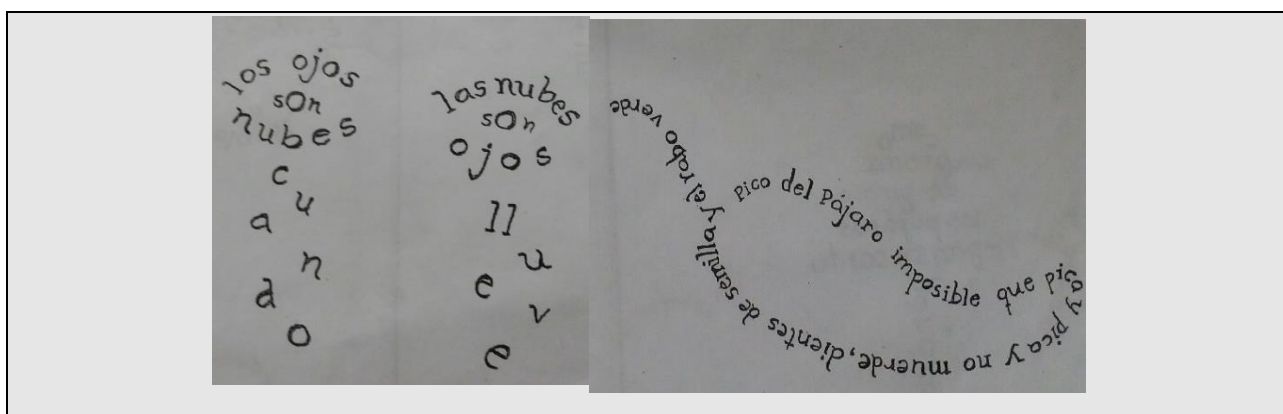 los ojos
son
nubes
c
u
a
n
d
o
las nubes
sOn
ojos
ll
u
e
v
e
Pico del Pájaro imposible que pica y pica y no muerde, dientes de semilla y el rabo verde